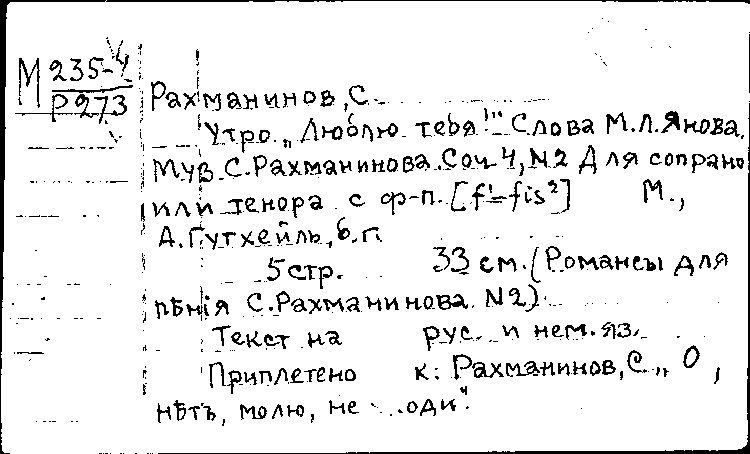 М 235-4
Р 273
Рахманинов, С.
Утро. „Люблю тебя!" Слова М.Л. Янова.
Муз. С. Рахманинова. Соч. 4, N2 Для сопрано
или тенора с ф-п. [f¹-fis²] М.,
А. Гутхейль, б.г.
5 стр. 33 см. (Романсы для
пѣнія С. Рахманинова. N2)
Текст на рус. и нем. яз.
Приплетено к: Рахманинов, С. „О,
нѣтъ, молю, не ...оди".